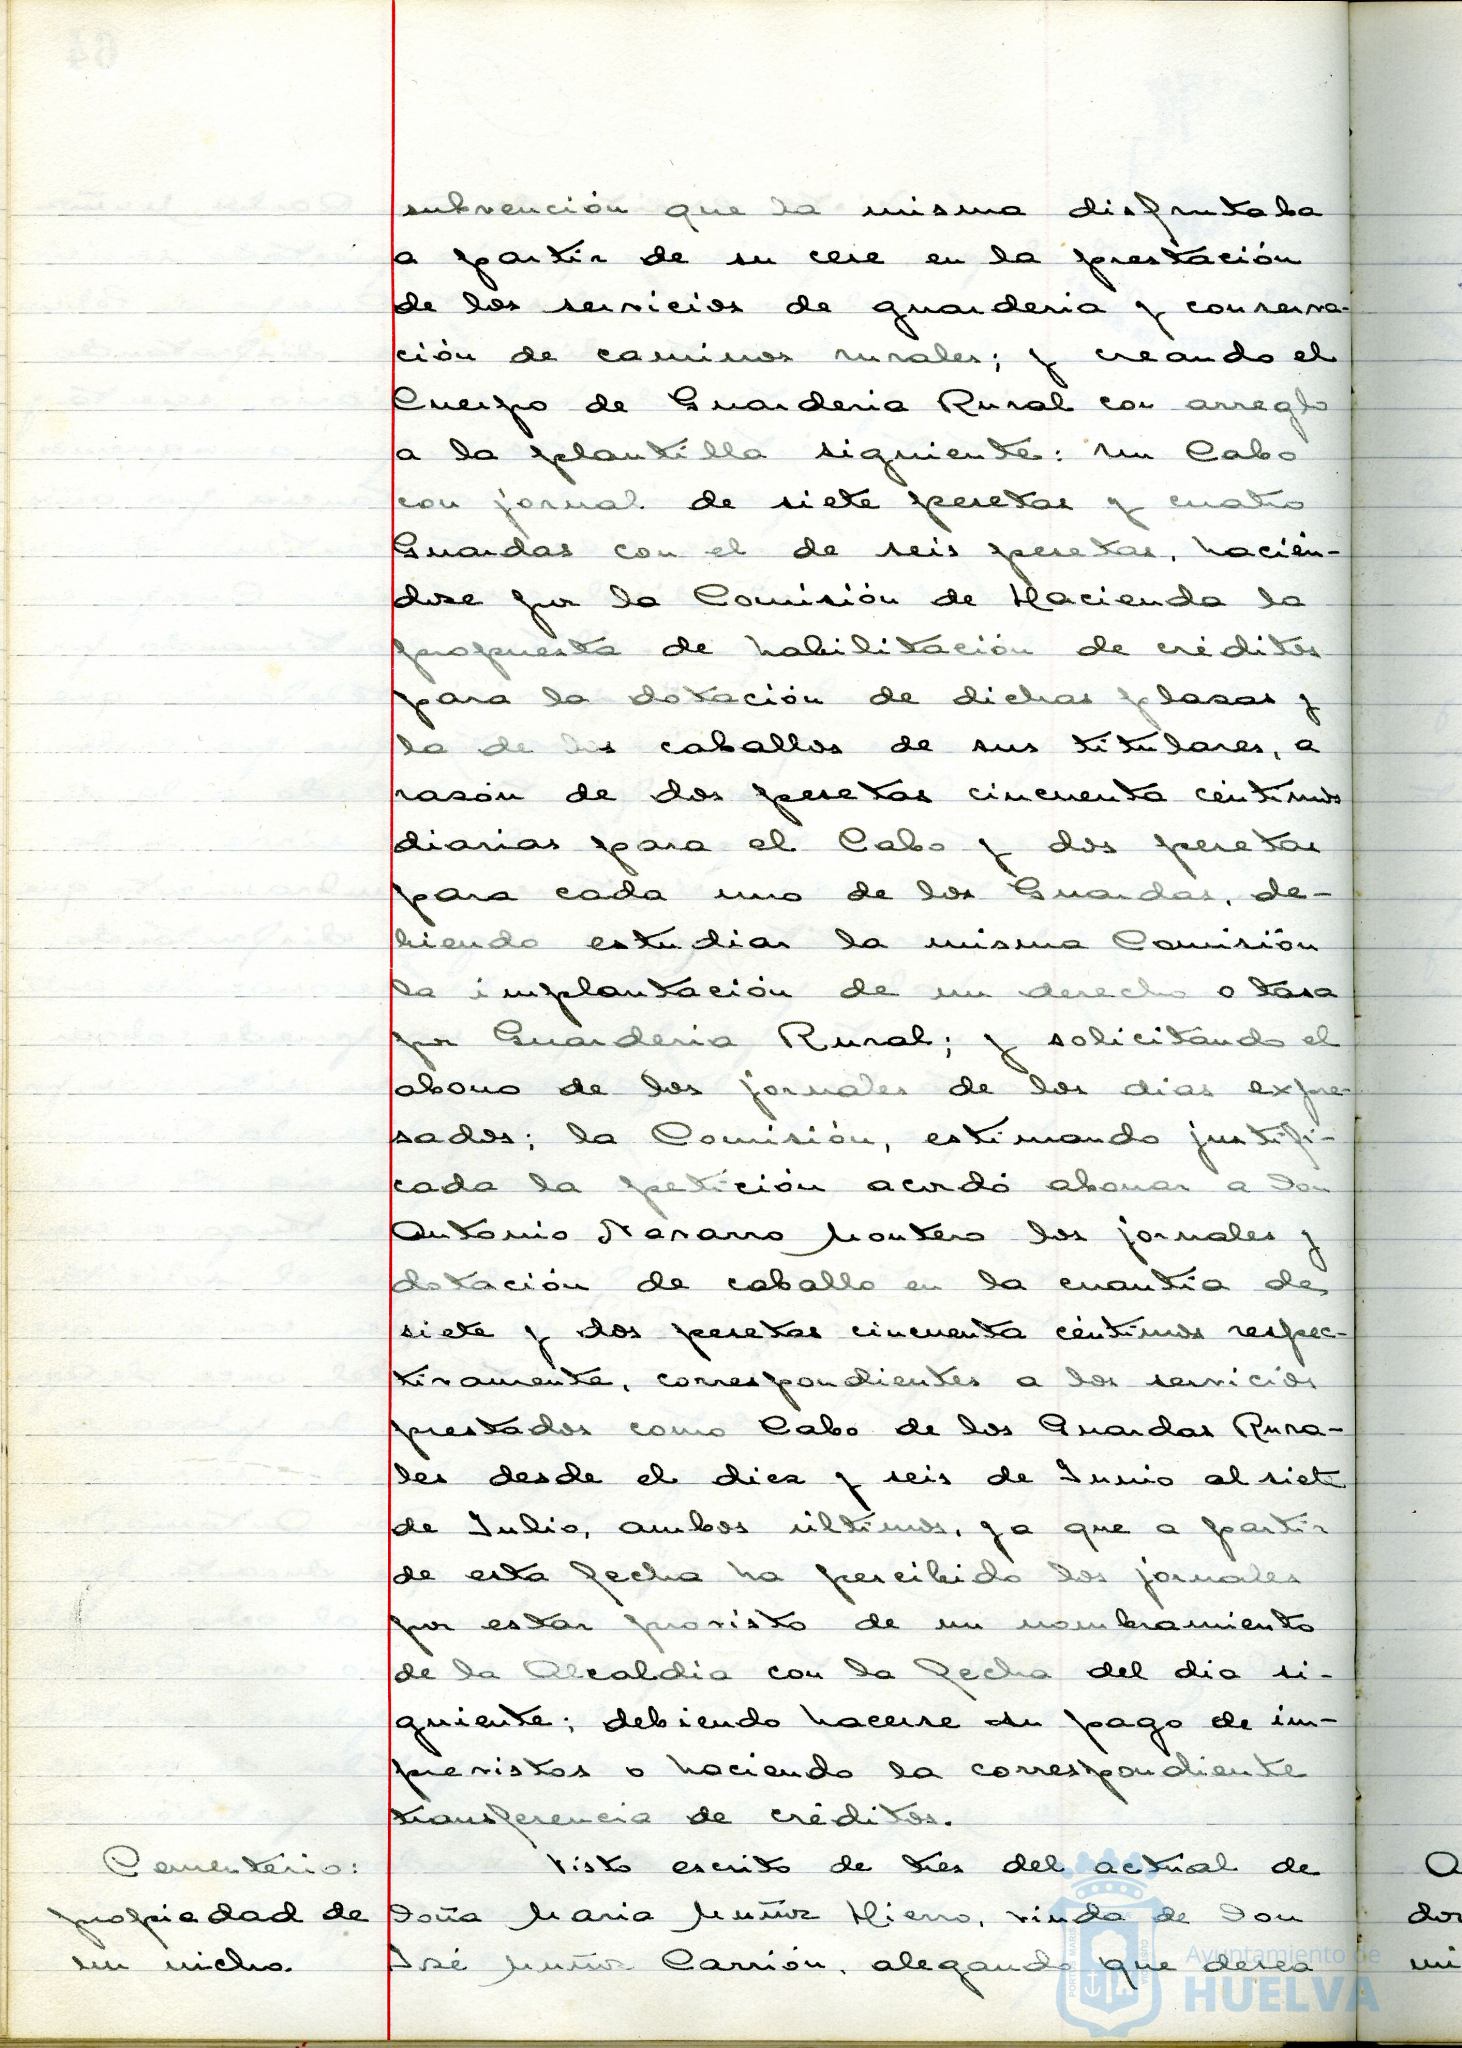 subvención que la misma disfrutaba
a partir de su cese en la prestación
de los servicios de guarderia y conserva-
ción de caminos rurales; y creando el
Cuerpo de Guarderia Rural con arreglo
a la plantilla siguiente: un Cabo
con jornal de siete pesetas y cuatro
Guardas con el de seis pesetas, hacién-
dose por la Comisión de Hacienda la
propuesta de habilitación de créditos
para la dotación de dichas plazas y
la de los caballos de sus titulares, a
razón de dos pesetas cincuenta céntimos
diarias para el Cabo y dos pesetas
para cada uno de los Guardas, de-
biendo estudiar la misma Comisión
la implantación de un derecho o tasa
por Guarderia Rural; y solicitando el
abono de los jornales de los dias expre-
sados; la Comisión, estimando justifi-
cada la petición acordó abonar a Don
Antonio Navarro Montero los jornales y
dotación de caballo en la cuantia de
siete y dos pesetas cincuenta céntimos respec-
tivamente, correspondientes a los servicios
prestados como Cabo de los Guardas Rura-
les desde el diez y seis de Junio al siete
de Julio, ambos últimos, ya que a partir
de esta fecha ha percibido los jornales
por estar provisto de un nombramiento
de la Alcaldia con la fecha del dia si-
guiente; debiendo hacerse su pago de im-
previstos o haciendo la correspondiente
transferencia de créditos.
Cementerio:
propiedad de
un nicho.
Visto escrito de tres del actual de
Doña Maria Muñoz Hierro, viuda de Don
José Muñoz Carrión, alegando que desea
Ayuntamiento de
HUELVA